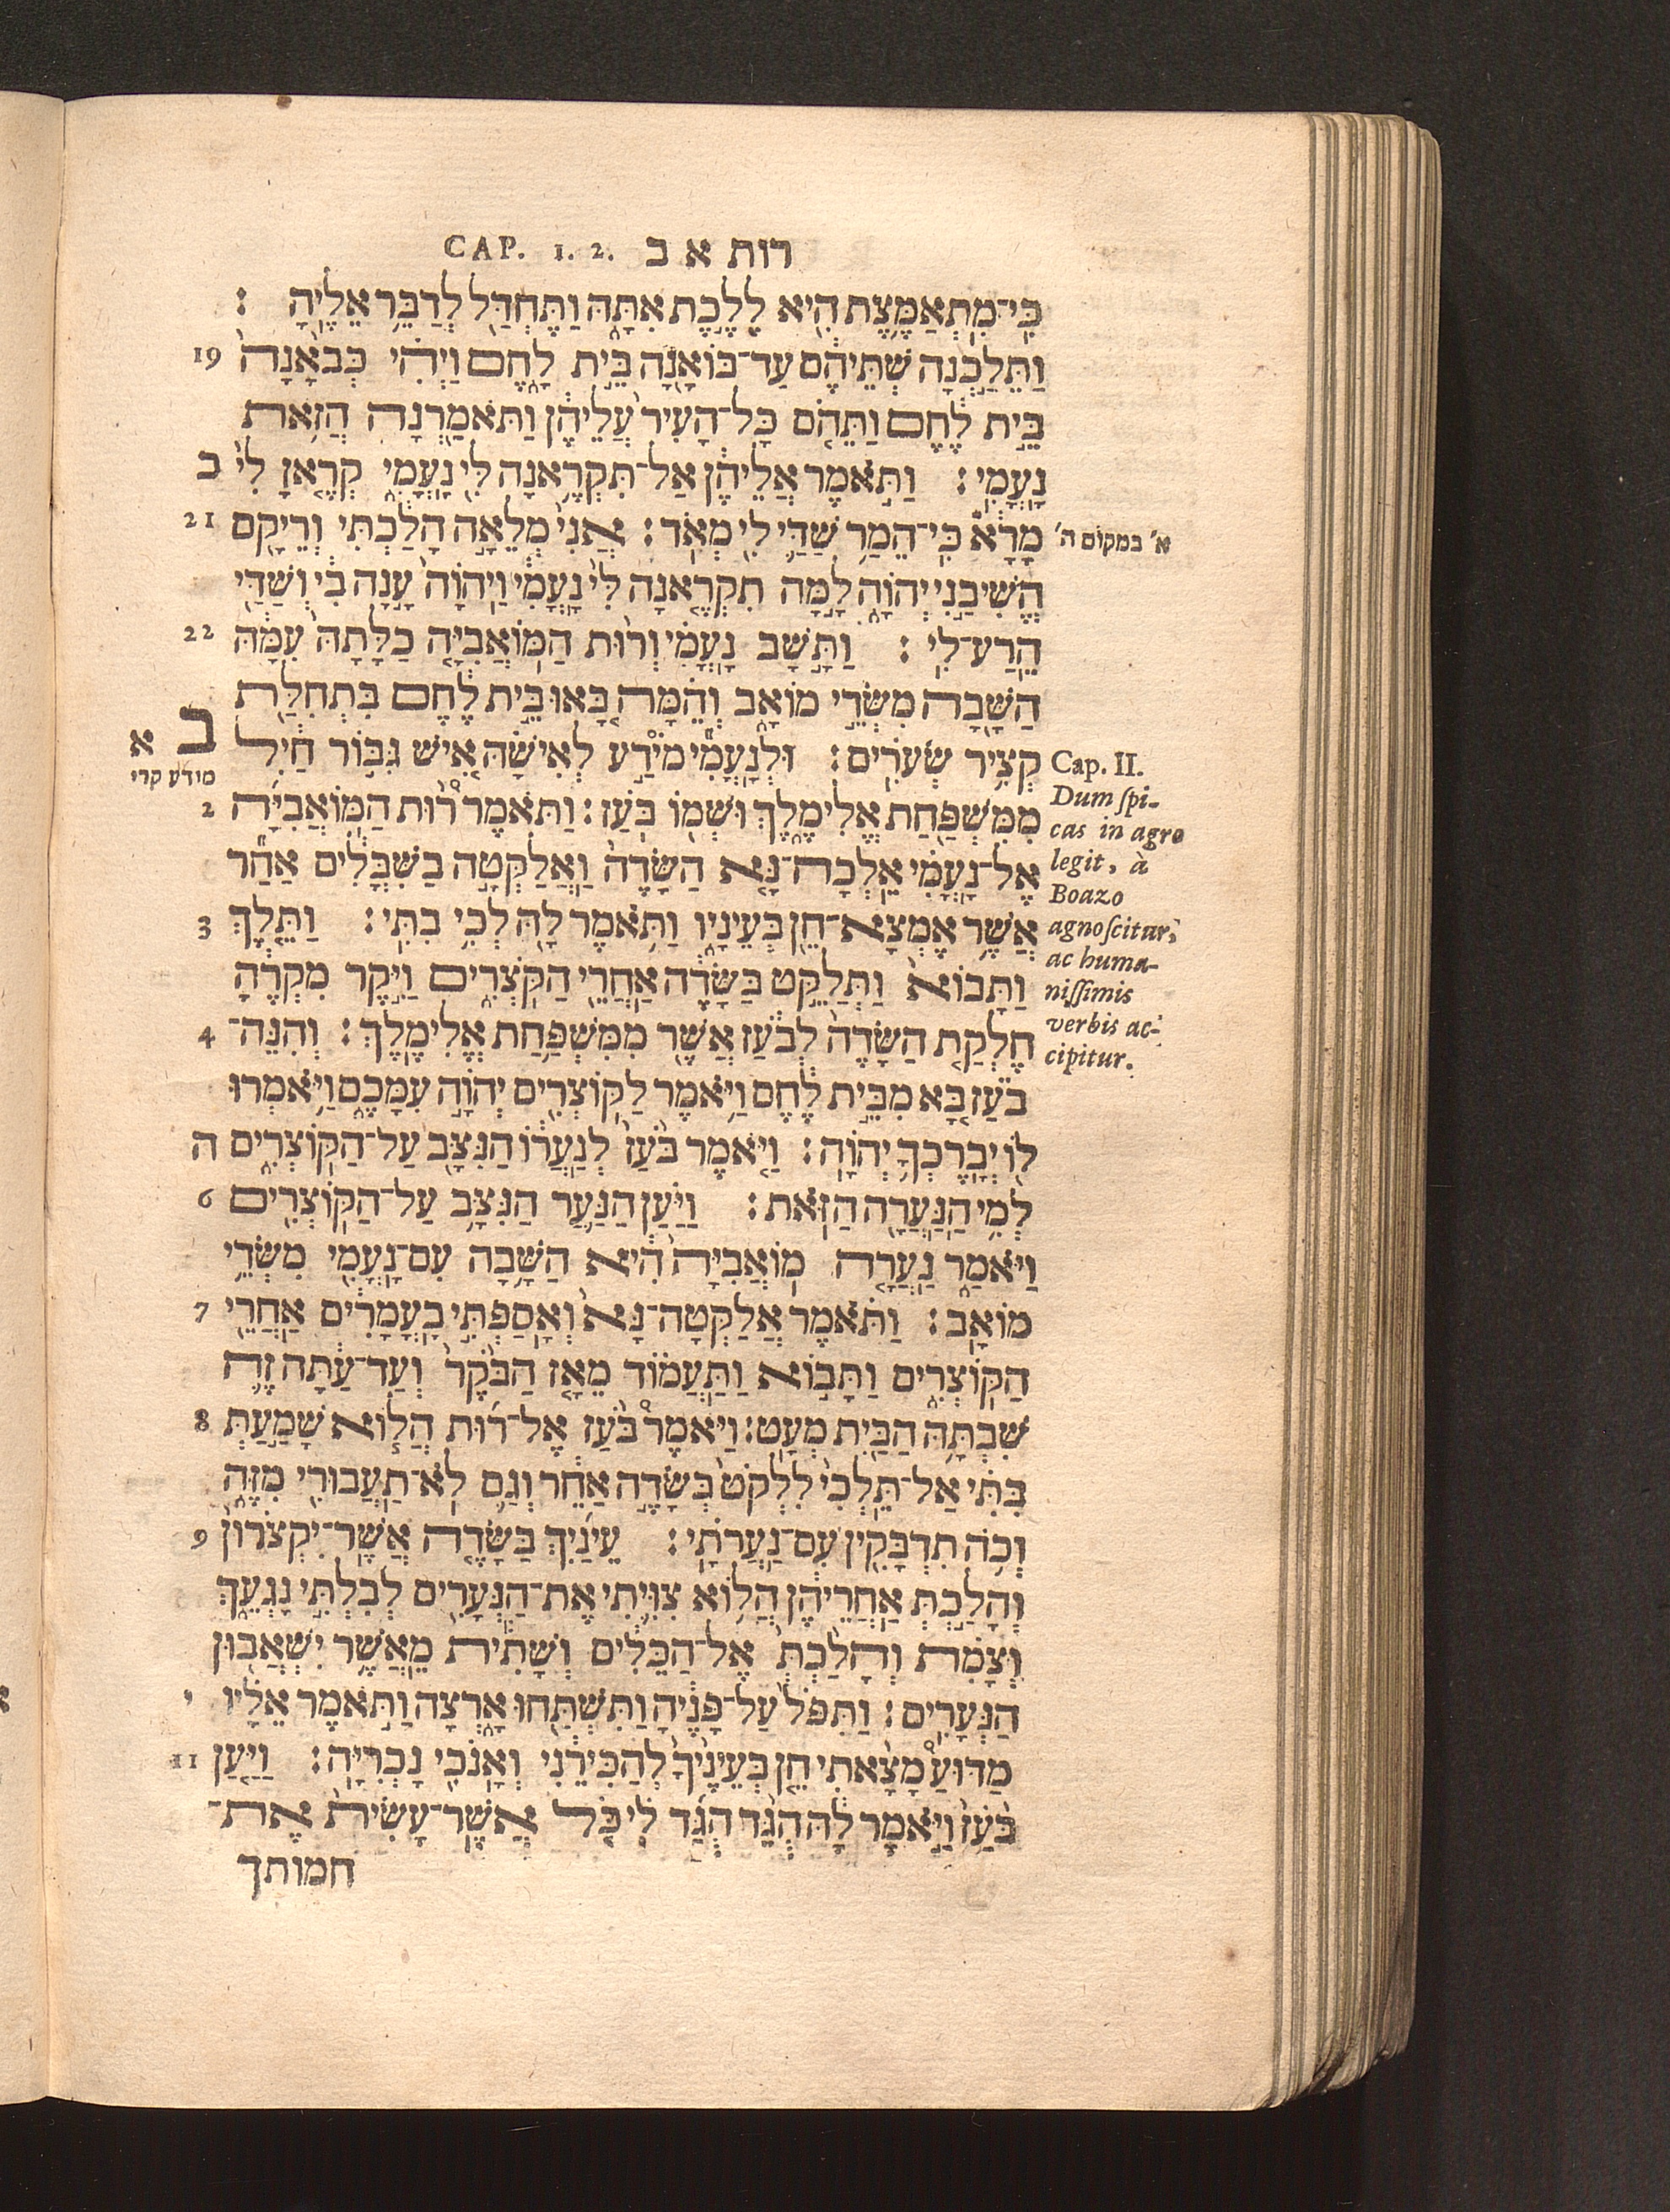 CAP. 1. 2. רות א ב
כִּֽי־מִתְאַמֶּ֥צֶת הִ֖יא לָלֶ֣כֶת אִתָּ֑הּ וַתֶּחְדַּ֖ל לְדַבֵּ֥ר אֵלֶֽיהָ :
19 וַתֵּלַ֣כְנָה שְׁתֵּיהֶ֔ם עַד־בּוֹאָ֖נָה בֵּ֣ית לָ֑חֶם וַיְהִ֗י כְּבֹאָ֙נָה֙
בֵּ֣ית לֶ֔חֶם וַתֵּהֹ֤ם כָּל־הָעִיר֙ עֲלֵיהֶ֔ן וַתֹּאמַ֖רְנָה הֲזֹ֥את
נָעֳמִֽי : וַתֹּ֣אמֶר אֲלֵיהֶ֔ן אַל־תִּקְרֶ֥אנָה לִ֖י נָעֳמִ֑י קְרֶ֤אןָ לִי֙ ב
מָרָ֔א כִּֽי־הֵמַ֥ר שַׁדַּ֛י לִ֖י מְאֹֽד : אֲנִי֙ מְלֵאָ֣ה הָלַ֔כְתִּי וְרֵיקָ֖ם 21
א׳ במקום ה׳
הֱשִׁיבַ֣נִי יְהוָ֑ה לָ֣מָּה תִקְרֶ֤אנָה לִי֙ נָעֳמִ֔י וַֽיהוָה֙ עָ֣נָה בִ֔י וְשַׁדַּ֖י
הֵ֥רַֽע־לִֽי : וַתָּ֣שָׁב נָעֳמִ֗י וְר֨וּת הַמּוֹאֲבִיָּ֤ה כַלָּתָהּ֙ עִמָּ֔הּ 22
הַשָּׁ֖בָה מִשְּׂדֵ֣י מוֹאָ֑ב וְהֵ֗מָּה בָּ֚אוּ בֵּ֣ית לֶ֔חֶם בִּתְחִלַּ֖ת
קְצִ֥יר שְׂעֹרִֽים : וּֽלְנָעֳמִ֞י מוֹדַ֣ע לְאִישָׁ֗הּ אִ֚ישׁ גִּבּ֣וֹר חַ֔יִל ב א
מודע קרי
מִמִּשְׁפַּ֖חַת אֱלִימֶ֑לֶךְ וּשְׁמ֖וֹ בֹּֽעַז : וַתֹּאמֶר֩ ר֨וּת הַמּוֹאֲבִיָּ֜ה 2
אֶֽל־נָעֳמִ֗י אֵֽלְכָה־נָּ֤א הַשָּׂדֶה֙ וַאֲלַקֳּטָ֣ה בַשִּׁבֳּלִ֔ים אַחַ֕ר
אֲשֶׁ֥ר אֶמְצָא־חֵ֖ן בְּעֵינָ֑יו וַתֹּ֥אמֶר לָ֖הּ לְכִ֥י בִתִּֽי : וַתֵּ֤לֶךְ 3
וַתָּבוֹא֙ וַתְּלַקֵּ֣ט בַּשָּׂדֶ֔ה אַחֲרֵ֖י הַקֹּצְרִ֑ים וַיִּ֣קֶר מִקְרֶ֔הָ
חֶלְקַ֤ת הַשָּׂדֶה֙ לְבֹ֔עַז אֲשֶׁ֖ר מִמִּשְׁפַּ֥חַת אֱלִימֶֽלֶךְ : וְהִנֵּה־ 4
בֹ֗עַז בָּ֚א מִבֵּ֣ית לֶ֔חֶם וַיֹּ֥אמֶר לַקּוֹצְרִ֖ים יְהוָ֣ה עִמָּכֶ֑ם וַיֹּ֥אמְרוּ
ל֖וֹ יְבָרֶכְךָ֥ יְהוָֽה : וַיֹּ֤אמֶר בֹּ֙עַז֙ לְנַעֲר֔וֹ הַנִּצָּ֖ב עַל־הַקּֽוֹצְרִ֑ים ה
לְמִ֖י הַנַּעֲרָ֥ה הַזֹּֽאת : וַיַּ֗עַן הַנַּ֛עַר הַנִּצָּ֥ב עַל־הַקּוֹצְרִ֖ים 6
וַיֹּאמַ֑ר נַעֲרָ֤ה מֽוֹאֲבִיָּה֙ הִ֔יא הַשָּׁ֥בָה עִֽם־נָעֳמִ֖י מִשְּׂדֵ֥י
מוֹאָֽב : וַתֹּ֗אמֶר אֲלַקֳטָה־נָּא֙ וְאָסַפְתִּ֣י בָֽעֳמָרִ֔ים אַחֲרֵ֖י 7
הַקּוֹצְרִ֑ים וַתָּב֣וֹא וַֽתַּעֲמ֗וֹד מֵאָ֤ז הַבֹּ֙קֶר֙ וְעַד־עַ֔תָּה זֶ֛ה
שִׁבְתָּ֥הּ הַבַּ֖יִת מְעָֽט : וַיֹּאמֶר֩ בֹּ֨עַז אֶל־ר֜וּת הֲל֧וֹא שָׁמַ֣עַתְּ 8
בִּתִּ֗י אַל־תֵּֽלְכִי֙ לִלְקֹט֙ בְּשָׂדֶ֣ה אַחֵ֔ר וְגַ֛ם לֹ֥א־תַעֲבוּרִ֖י מִזֶּ֑ה
וְכֹ֥ה תִדְבָּקִ֖ין עִם־נַעֲרֹתָֽי : עֵינַ֜יִךְ בַּשָּׂדֶ֤ה אֲשֶׁר־יִקְצֹרוּן֙ 9
וְהָלַ֣כְתְּ אַחֲרֵיהֶ֔ן הֲל֥וֹא צִוִּ֛יתִי אֶת־הַנְּעָרִ֖ים לְבִלְתִּ֣י נָגְעֵ֑ךְ
וְצָמִ֗ת וְהָלַכְתְּ֙ אֶל־הַכֵּלִ֔ים וְשָׁתִ֕ית מֵאֲשֶׁ֥ר יִשְׁאֲב֖וּן
הַנְּעָרִֽים : וַתִּפֹּל֙ עַל־פָּנֶ֔יהָ וַתִּשְׁתַּ֖חוּ אָ֑רְצָה וַתֹּ֣אמֶר אֵלָ֗יו י
מַדּוּעַ֩ מָצָ֨אתִי חֵ֤ן בְּעֵינֶ֙יךָ֙ לְהַכִּירֵ֔נִי וְאָֽנֹכִ֖י נָכְרִיָּֽה : וַיַּ֤עַן 11
בֹּ֙עַז֙ וַיֹּ֣אמֶר לָ֔הּ הֻגֵּ֨ד הֻגַּ֜ד לִ֗י כֹּ֤ל אֲשֶׁר־עָשִׂית֙ אֶת־
חמותך
Cap. II.
Dum spi-
cas in agro
legit, à
Boazo
agnoscitur,
ac huma-
nissimis
verbis ac-
cipitur.